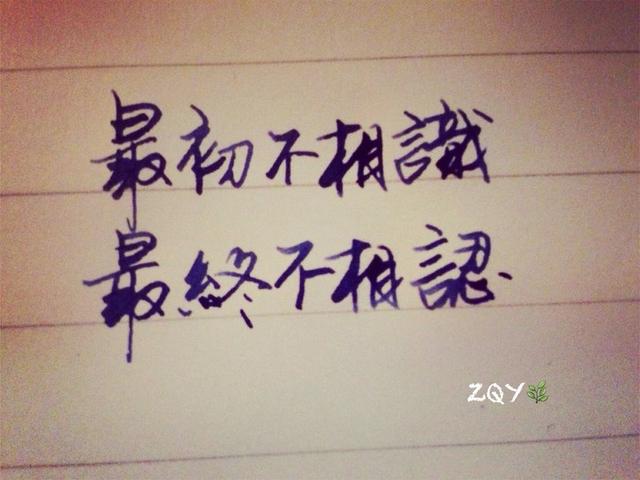 最初不相識
最終不相認
ZQY